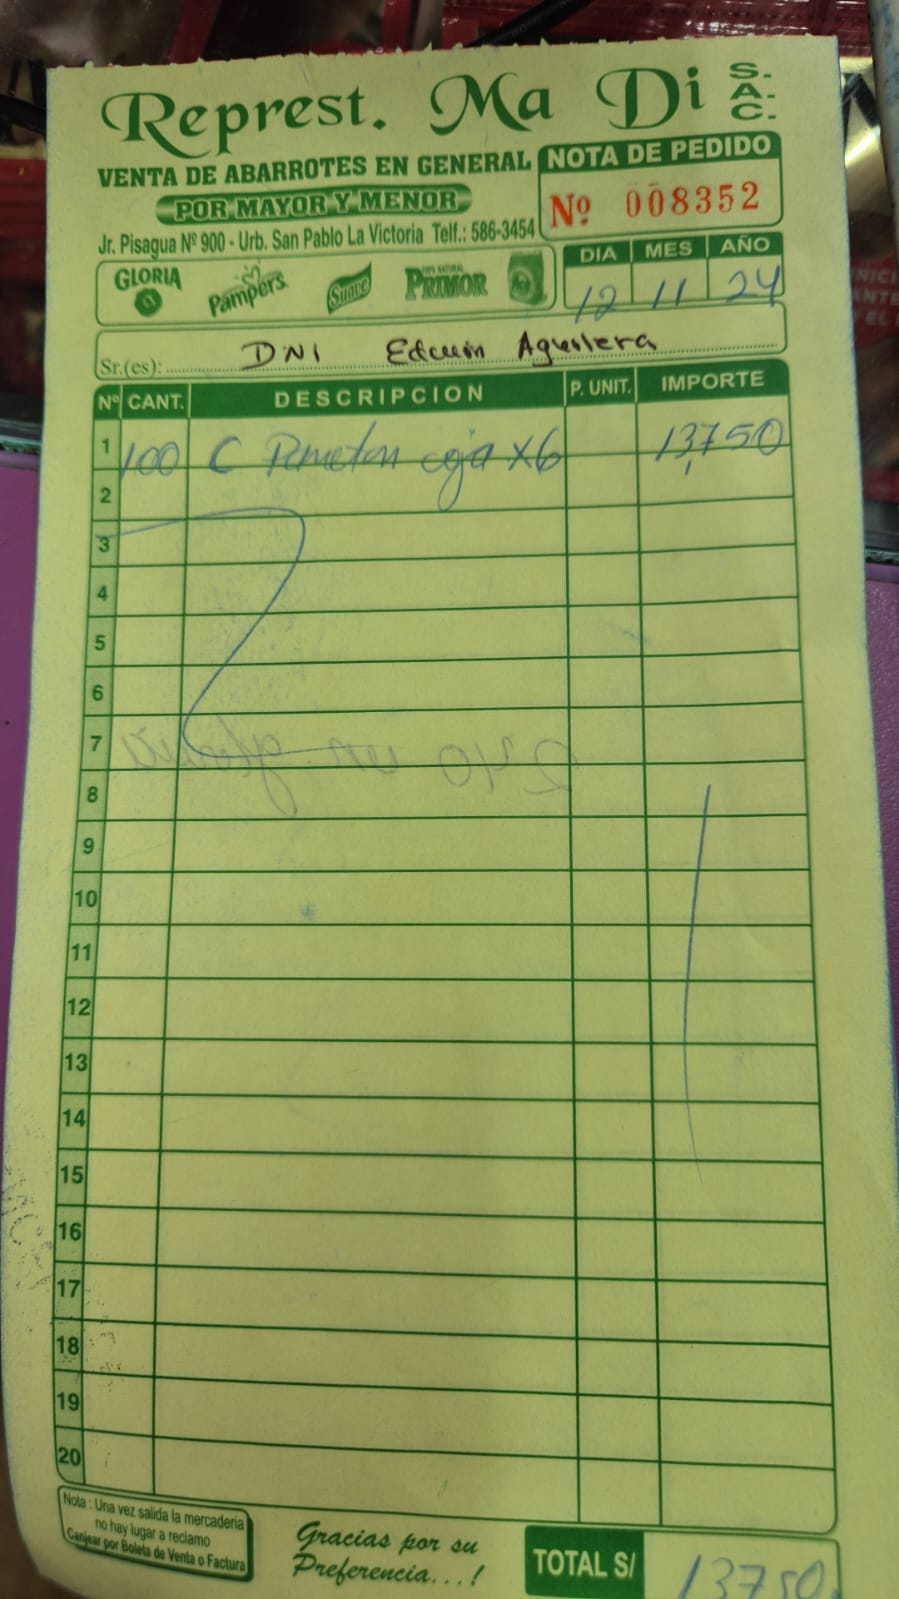 Represt. Ma Di S.A.C.
VENTA DE ABARROTES EN GENERAL
POR MAYOR Y MENOR
Jr. Pisagua Nº 900 - Urb. San Pablo La Victoria Telf.: 586-3454
NOTA DE PEDIDO
Nº 008352
GLORIA Pampers Suave 100% NATURAL PRIMOR Ace
DIA MES AÑO
12 11 24
Sr.(es): DNI Edcuin Aguilera
Nº CANT. DESCRIPCION P. UNIT. IMPORTE
1 100 C caja x6 13,750
2
3
4
5
6
7
240 un gloria
8
9
10
11
12
13
14
15
16
17
18
19
20
Nota : Una vez salida la mercaderia
no hay lugar a reclamo
Canjear por Boleta de Venta o Factura
Gracias por su
Preferencia...!
TOTAL S/ 13750.